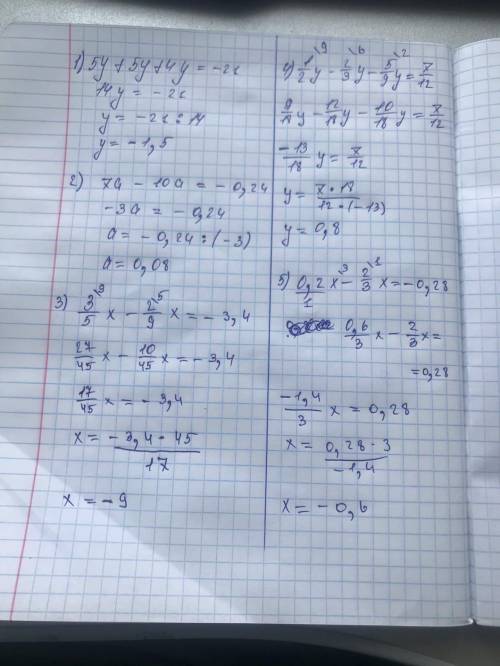 1) 5y + 5y + 4y = -21
14y = -21
y = -21 : 14
y = -1,5
2) 7a - 10a = -0,24
-3a = -0,24
a = -0,24 : (-3)
a = 0,08
3) 3/5 x - 2/9 x = -3,4
27/45 x - 10/45 x = -3,4
17/45 x = -3,4
x = -3,4 · 45 / 17
x = -9
4) 1/2 y - 2/3 y - 5/9 y = 7/12
9/18 y - 12/18 y - 10/18 y = 7/12
-13/18 y = 7/12
y = 7 · 18 / 12 · (-13)
y = 0,8
5) 0,2/1 x - 2/3 x = -0,28
0,6/3 x - 2/3 x =
= 0,28
-1,4/3 x = 0,28
x = 0,28 · 3 / -1,4
x = -0,6